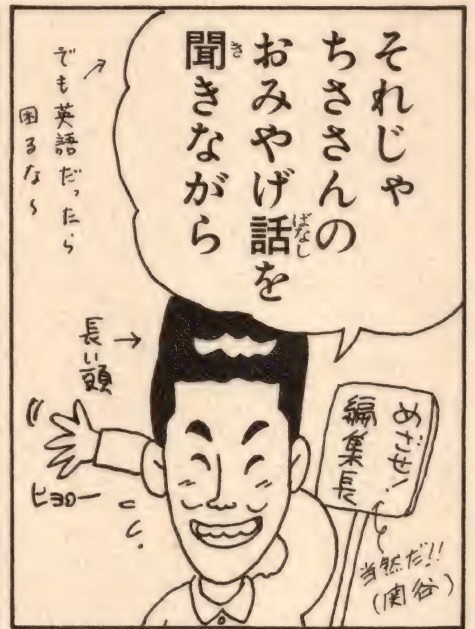 それじゃ
ちささんの
おみやげ話を
ばなし
聞きながら
き
でも英語だったら
困るな〜
長い頭
ヒョロー
めざせ!
編集長
当然だ!!
(関谷)